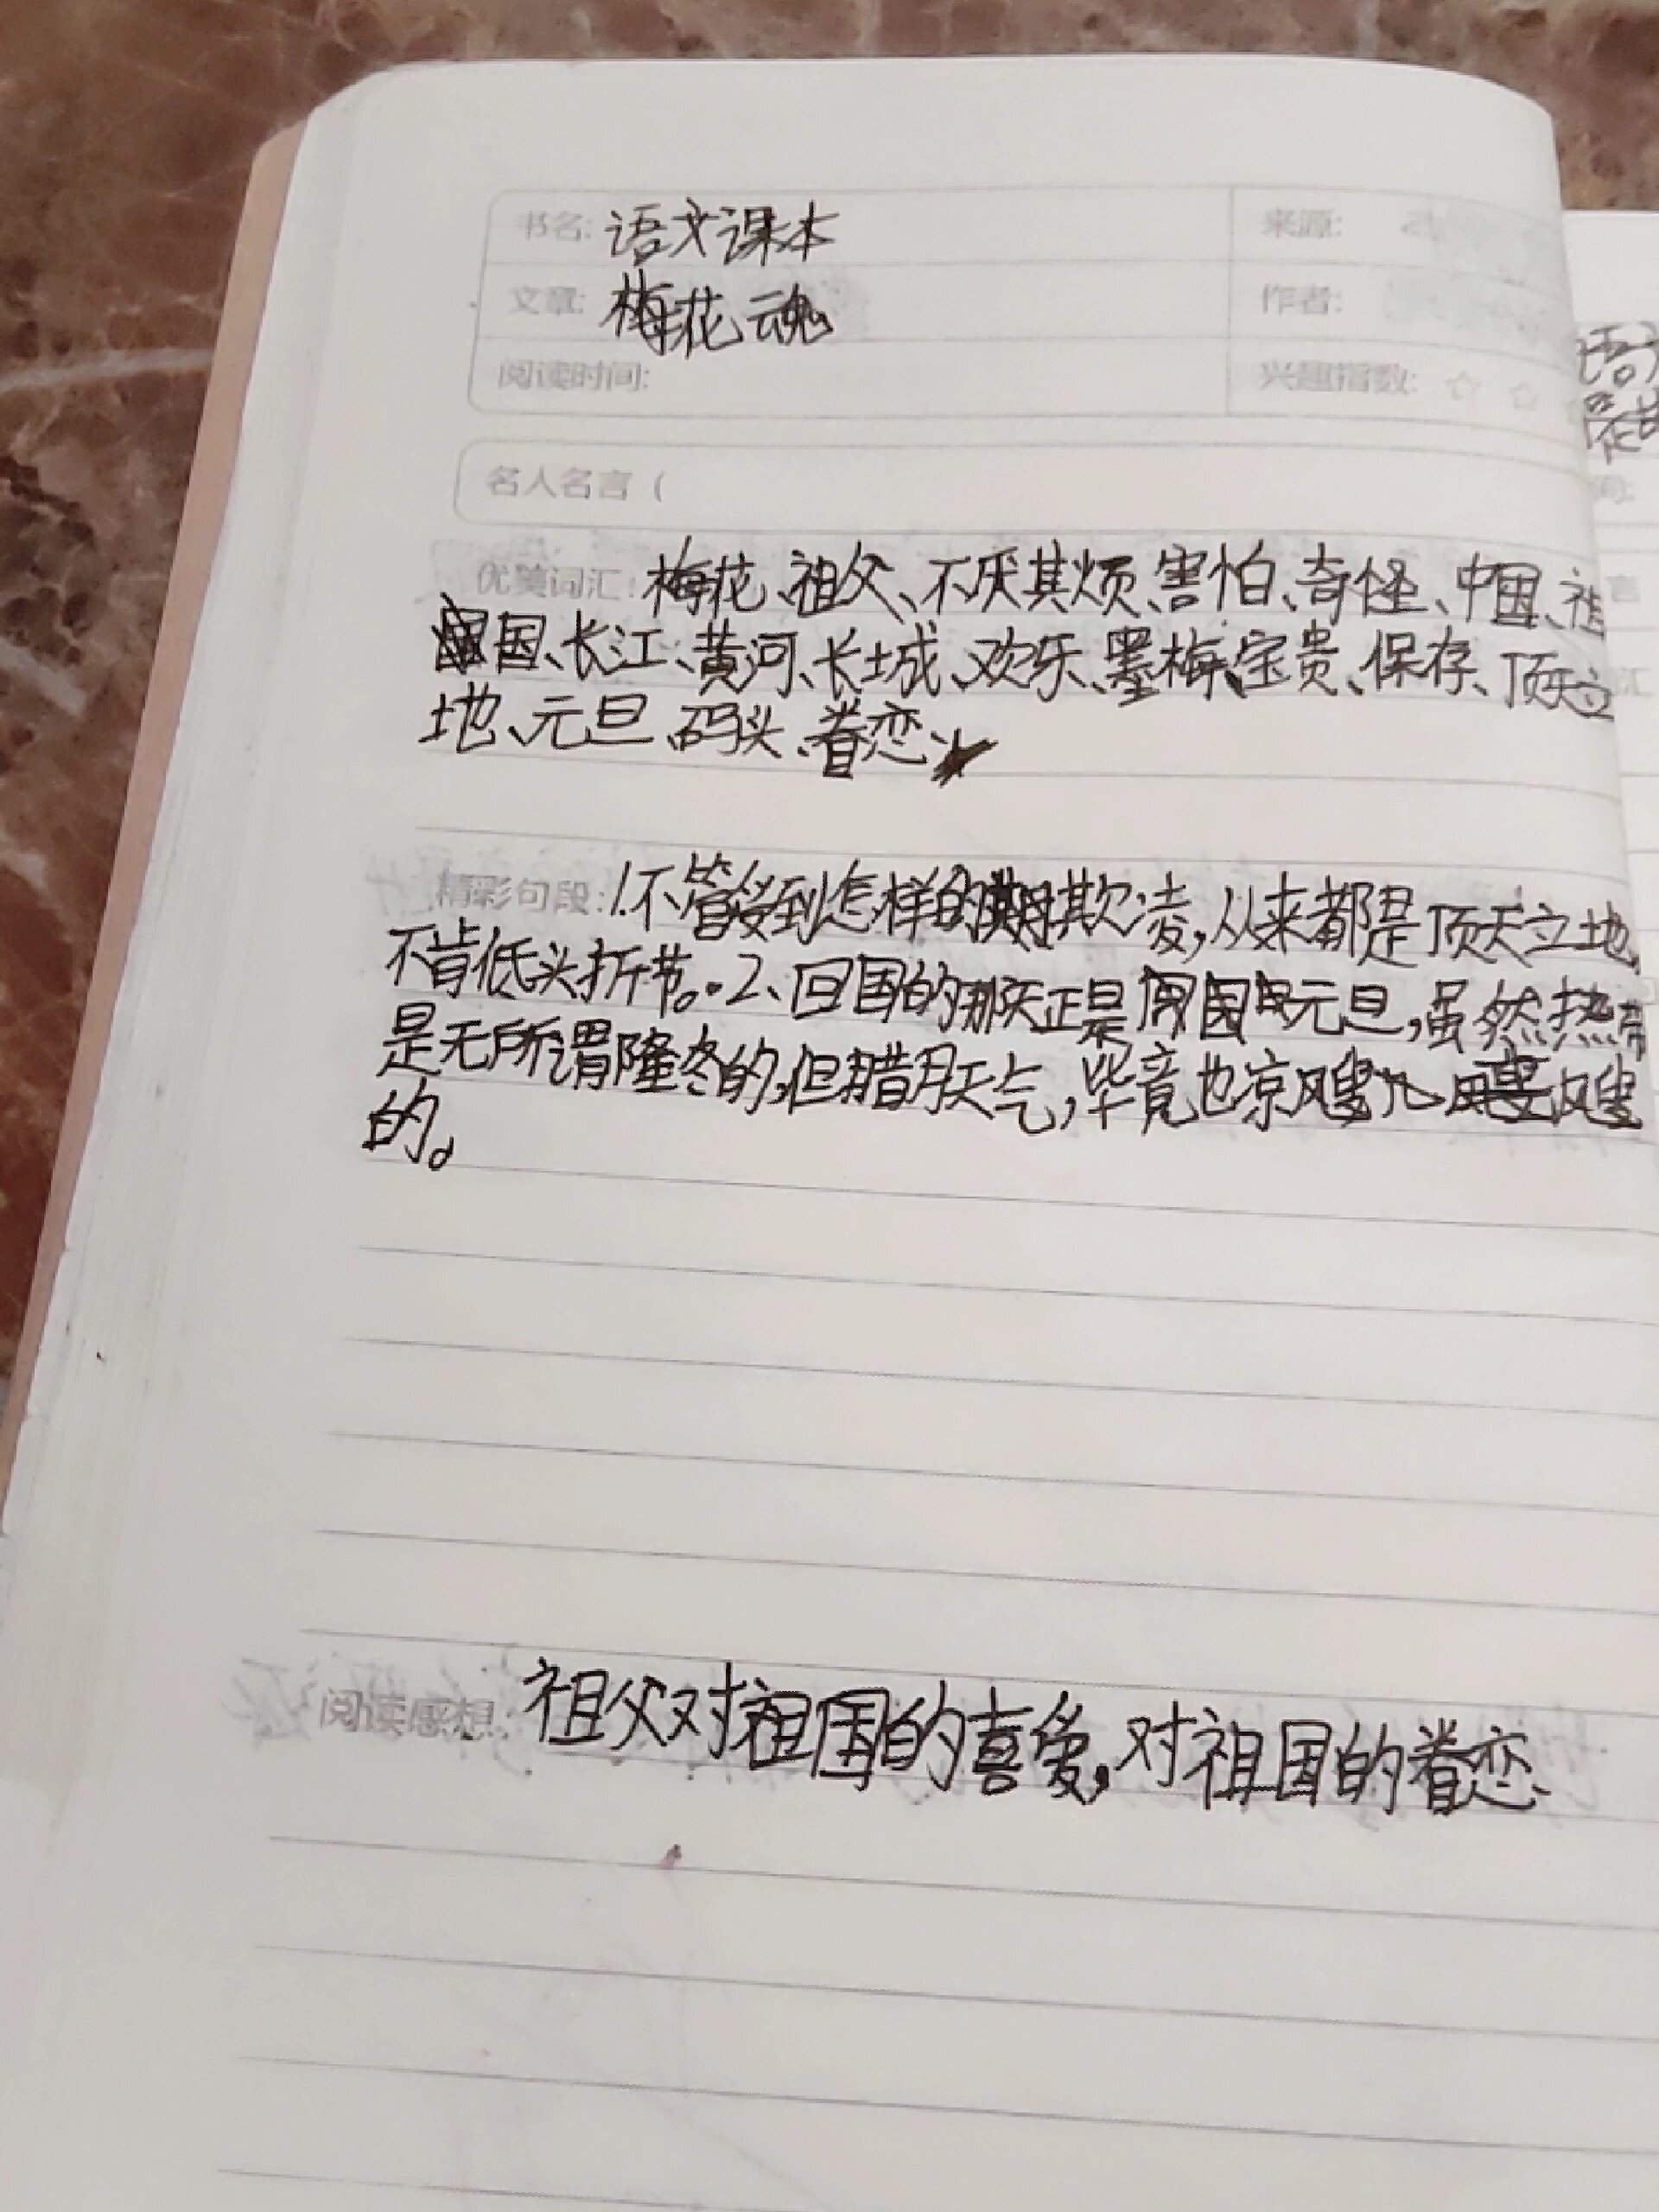 书名: 语文课本
来源:
文章: 梅花魂
作者:
阅读时间:
兴趣指数: ☆ ☆
名人名言（
优美词汇: 梅花、祖父、不厌其烦、害怕、奇怪、中国、祖
国、长江、黄河、长城、欢乐、墨梅、宝贵、保存、顶天立
地、元旦、码头、眷恋
精彩句段: 1.不管受到怎样的欺凌,从来都是顶天立地,
不肯低头折节。2、回国的那天正是元旦,虽然热带
是无所谓隆冬的,但腊月天气,毕竟也凉飕飕
的。
阅读感想: 祖父对祖国的喜爱,对祖国的眷恋.